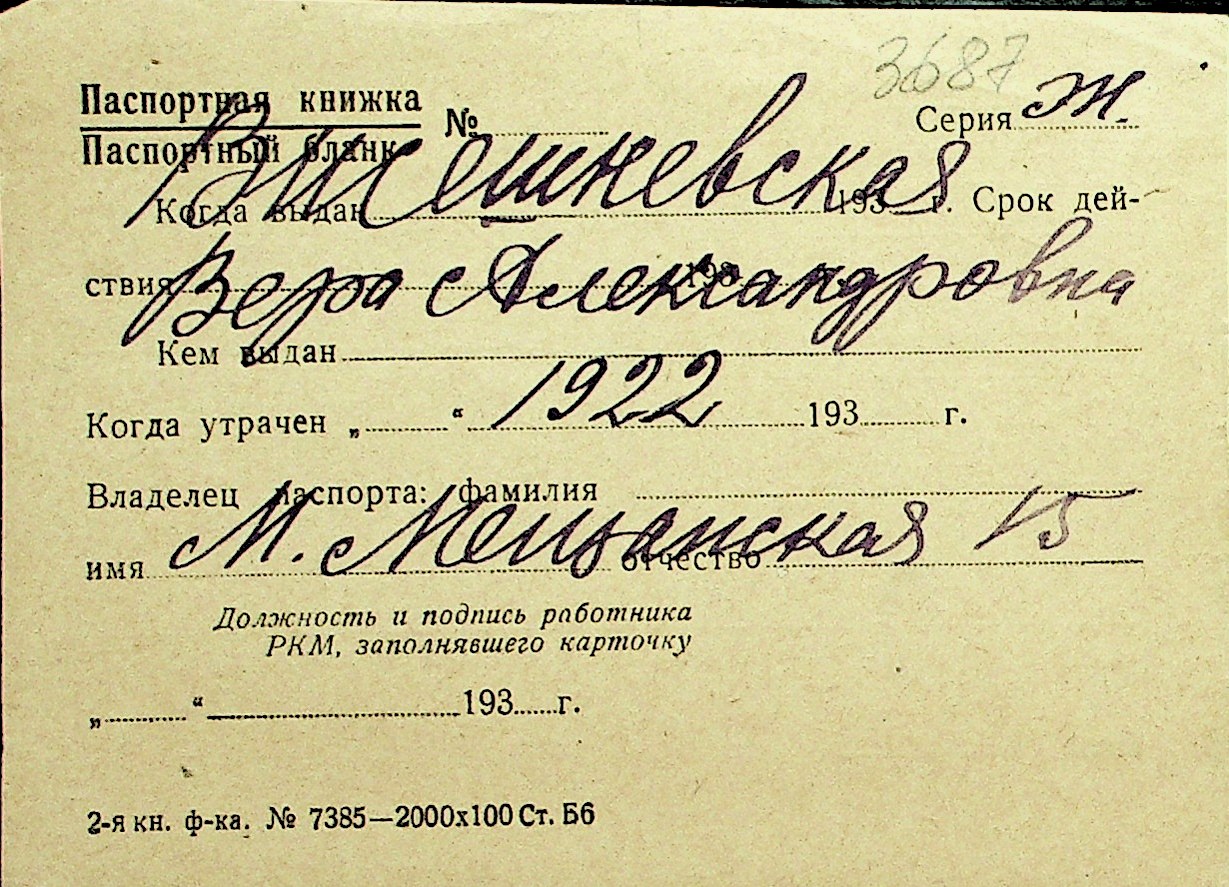 3687
Паспортная книжка
Паспортный бланк
№ Серия ж.
Когда выдан 193 г. Срок дей-
ствия 193
Вера Александровна
Кем выдан
1922
Когда утрачен „ “ 193 г.
Владелец паспорта: фамилия
М. Мещанская 15
имя отчество
Должность и подпись работника
РКМ, заполнявшего карточку
„ “ 193 г.
2-я кн. ф-ка. № 7385—2000х100 Ст. Б6